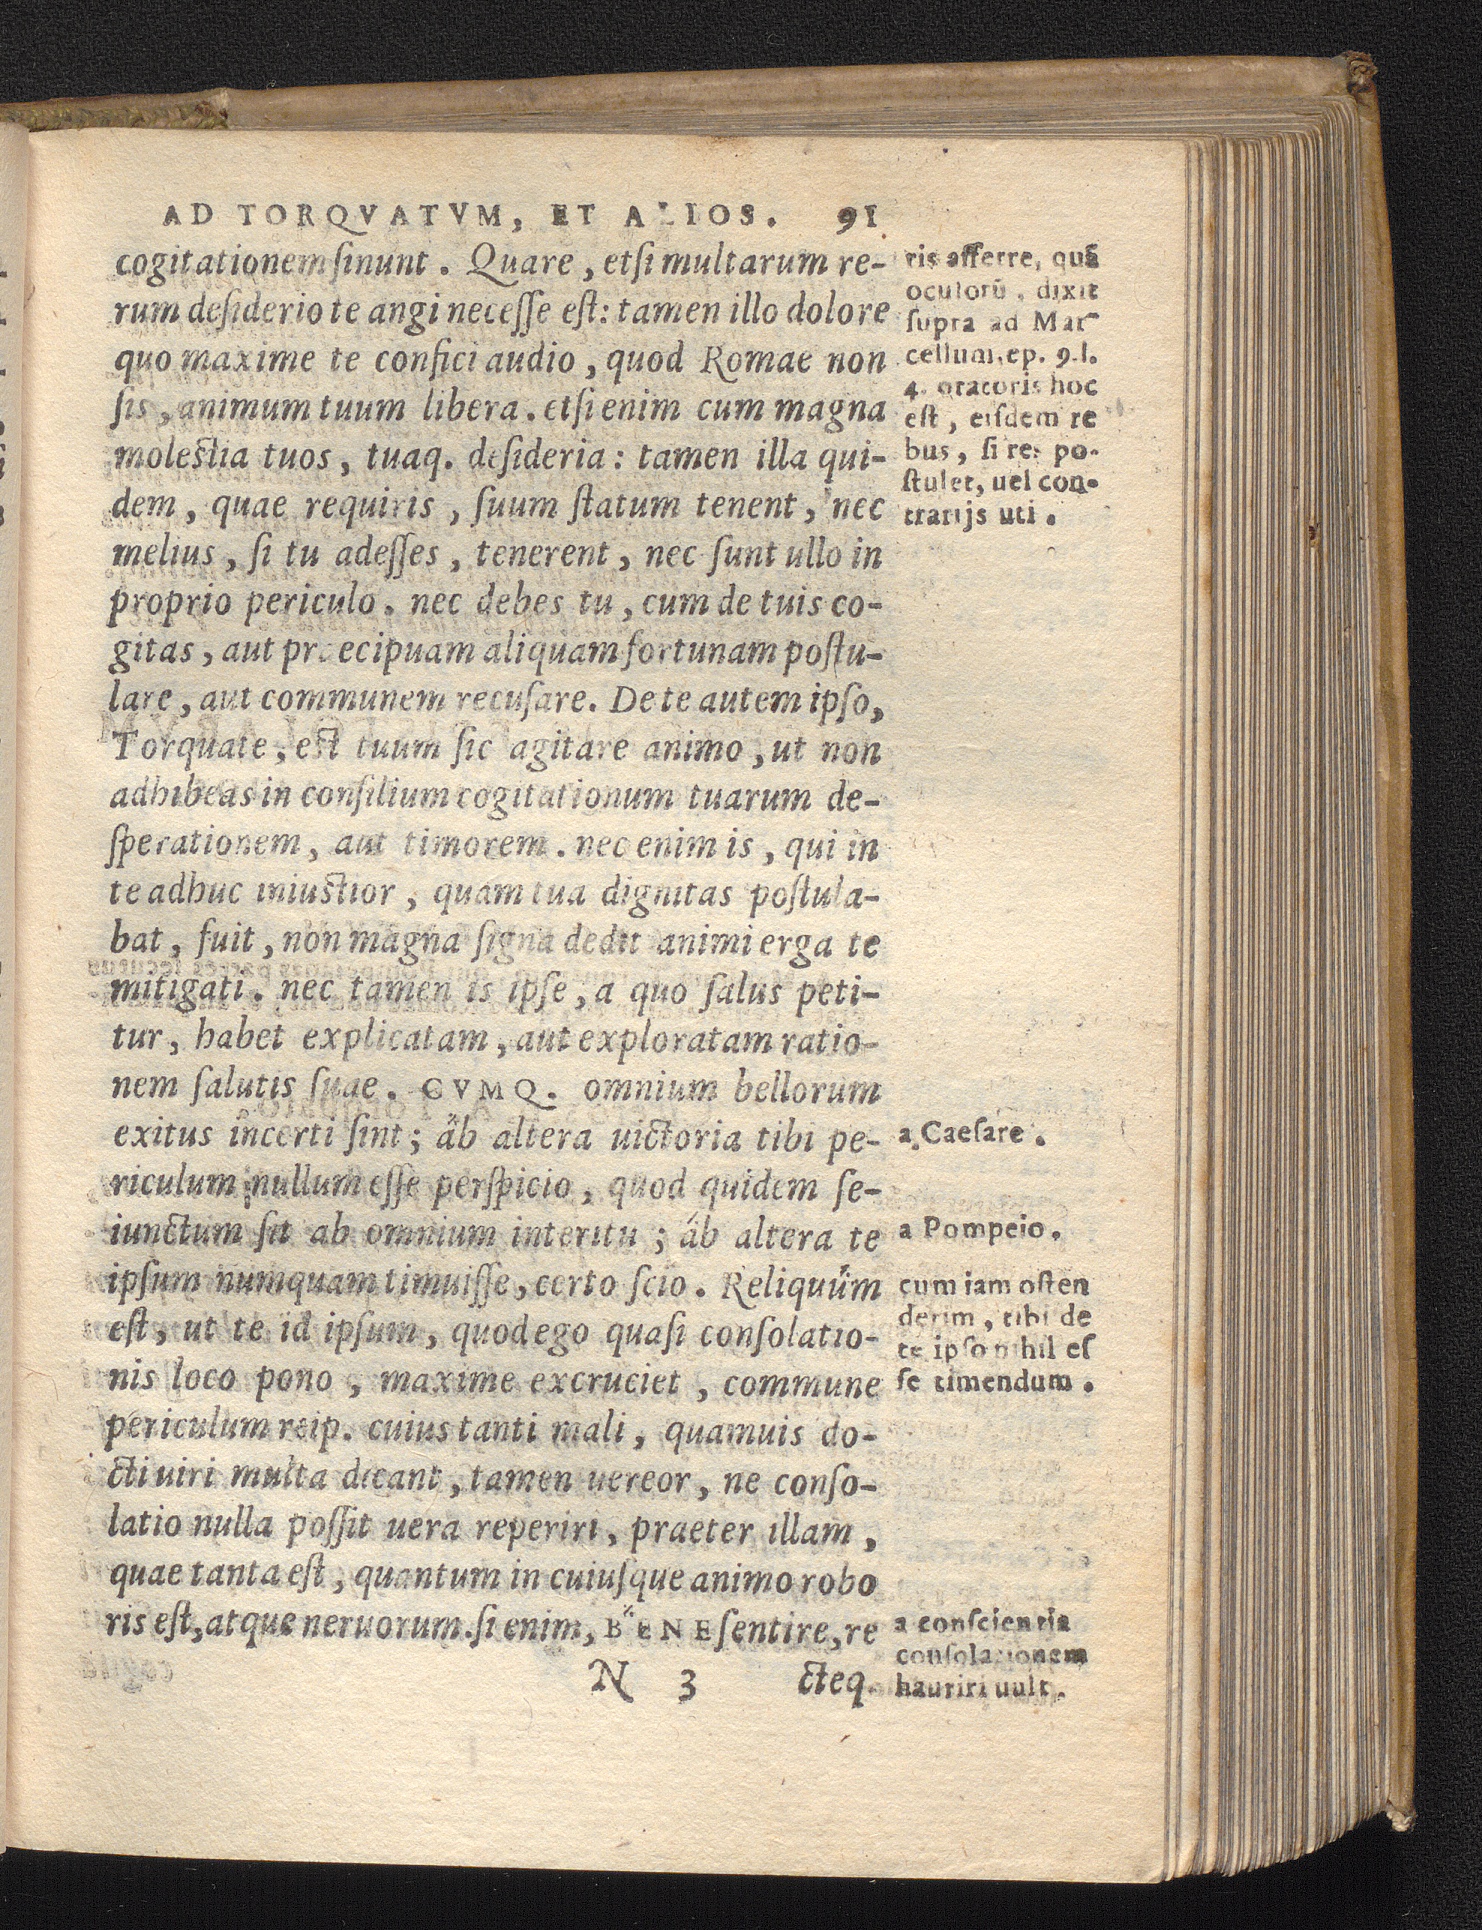 AD TORQVATVM, ET ALIOS. 91
cogitationem sinunt. Quare, etsi multarum re-
rum desiderio te angi necesse est: tamen illo dolore
quo maxime te confici audio, quod Romae non
sis, animum tuum libera. etsi enim cum magna
molestia tuos, tuaq. desideria: tamen illa qui-
dem, quae requiris, suum statum tenent, nec
melius, si tu adesses, tenerent, nec sunt ullo in
proprio periculo. nec debes tu, cum de tuis co-
gitas, aut praecipuam aliquam fortunam postu-
lare, aut communem recusare. De te autem ipso,
Torquate, est tuum sic agitare animo, ut non
adhibeas in consilium cogitationum tuarum de-
sperationem, aut timorem. nec enim is, qui in
te adhuc iniustior, quam tua dignitas postula-
bat, fuit, non magna signa dedit animi erga te
mitigati. nec tamen is ipse, a quo salus peti-
tur, habet explicatam, aut exploratam ratio-
nem salutis suae. CVMQ. omnium bellorum
exitus incerti sint; ab altera uictoria tibi pe-
riculum nullum esse perspicio, quod quidem se-
iunctum sit ab omnium interitu; ab altera te
ipsum numquam timuisse, certo scio. Reliquum
est, ut te id ipsum, quod ego quasi consolatio-
nis loco pono, maxime excruciet, commune
periculum reip. cuius tanti mali, quamuis do-
cti uiri multa dicant, tamen uereor, ne conso-
latio nulla possit uera reperiri, praeter illam,
quae tanta est, quantum in cuiusque animo robo
ris est, atque neruorum. si enim, BENE sentire, re
N 3 cteq.
ris afferre, quã
oculorũ, dixit
supra ad Mar
cellum. ep. 9. l.
4. oratoris hoc
est, eisdem re
bus, si res po-
stulet, uel con-
trarijs uti.
a Caesare.
a Pompeio.
cum iam osten
derim, tibi de
te ipso nihil es
se timendum.
a conscientia
consolationem
hauriri uult.